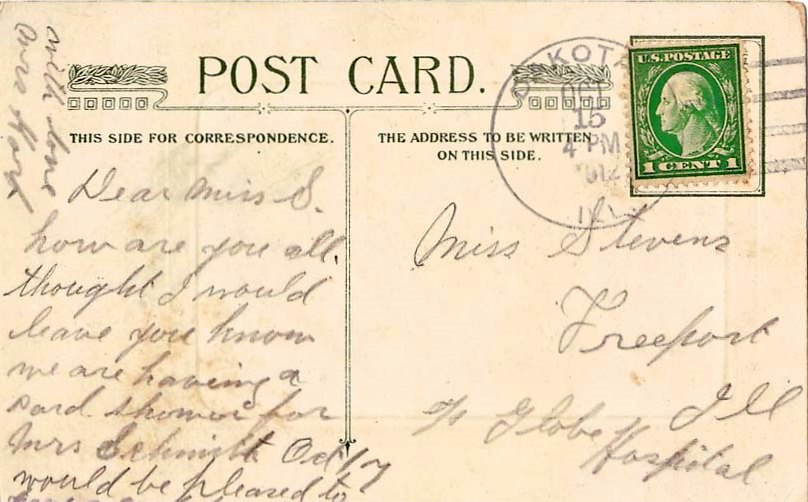 POST CARD.
THIS SIDE FOR CORRESPONDENCE.
THE ADDRESS TO BE WRITTEN
ON THIS SIDE.
DAKOTA
OCT
15
4 PM
1912
ILL
U.S. POSTAGE
1 CENT 1
Dear Miss S.
how are you all.
thought I would
leave you know
we are having a
card shower for
Mrs Schmith Oct 17
would be pleased to
with love
Miss Stevens
Freeport
Ill
c/o Globe
Hospital